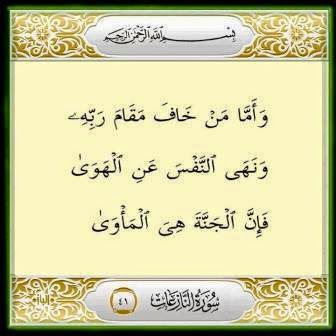 بِسْمِ اللَّهِ الرَّحْمَٰنِ الرَّحِيمِ
وَأَمَّا مَنۡ خَافَ مَقَامَ رَبِّهِۦ
وَنَهَى ٱلنَّفۡسَ عَنِ ٱلۡهَوَىٰ
فَإِنَّ ٱلۡجَنَّةَ هِىَ ٱلۡمَأۡوَىٰ
سُورَةُ النَّازِعَاتِ ٤١